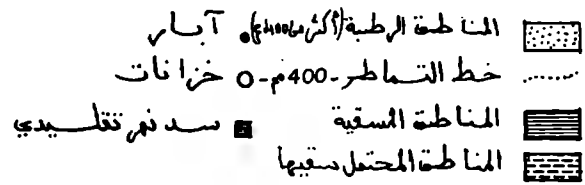 المناطق الرطبة (أكثر من 400م) آبار
خط التماطر -400م- خزانات
المناطق المسقية سد نهر تقليدي
المناطق المحتمل سقيها